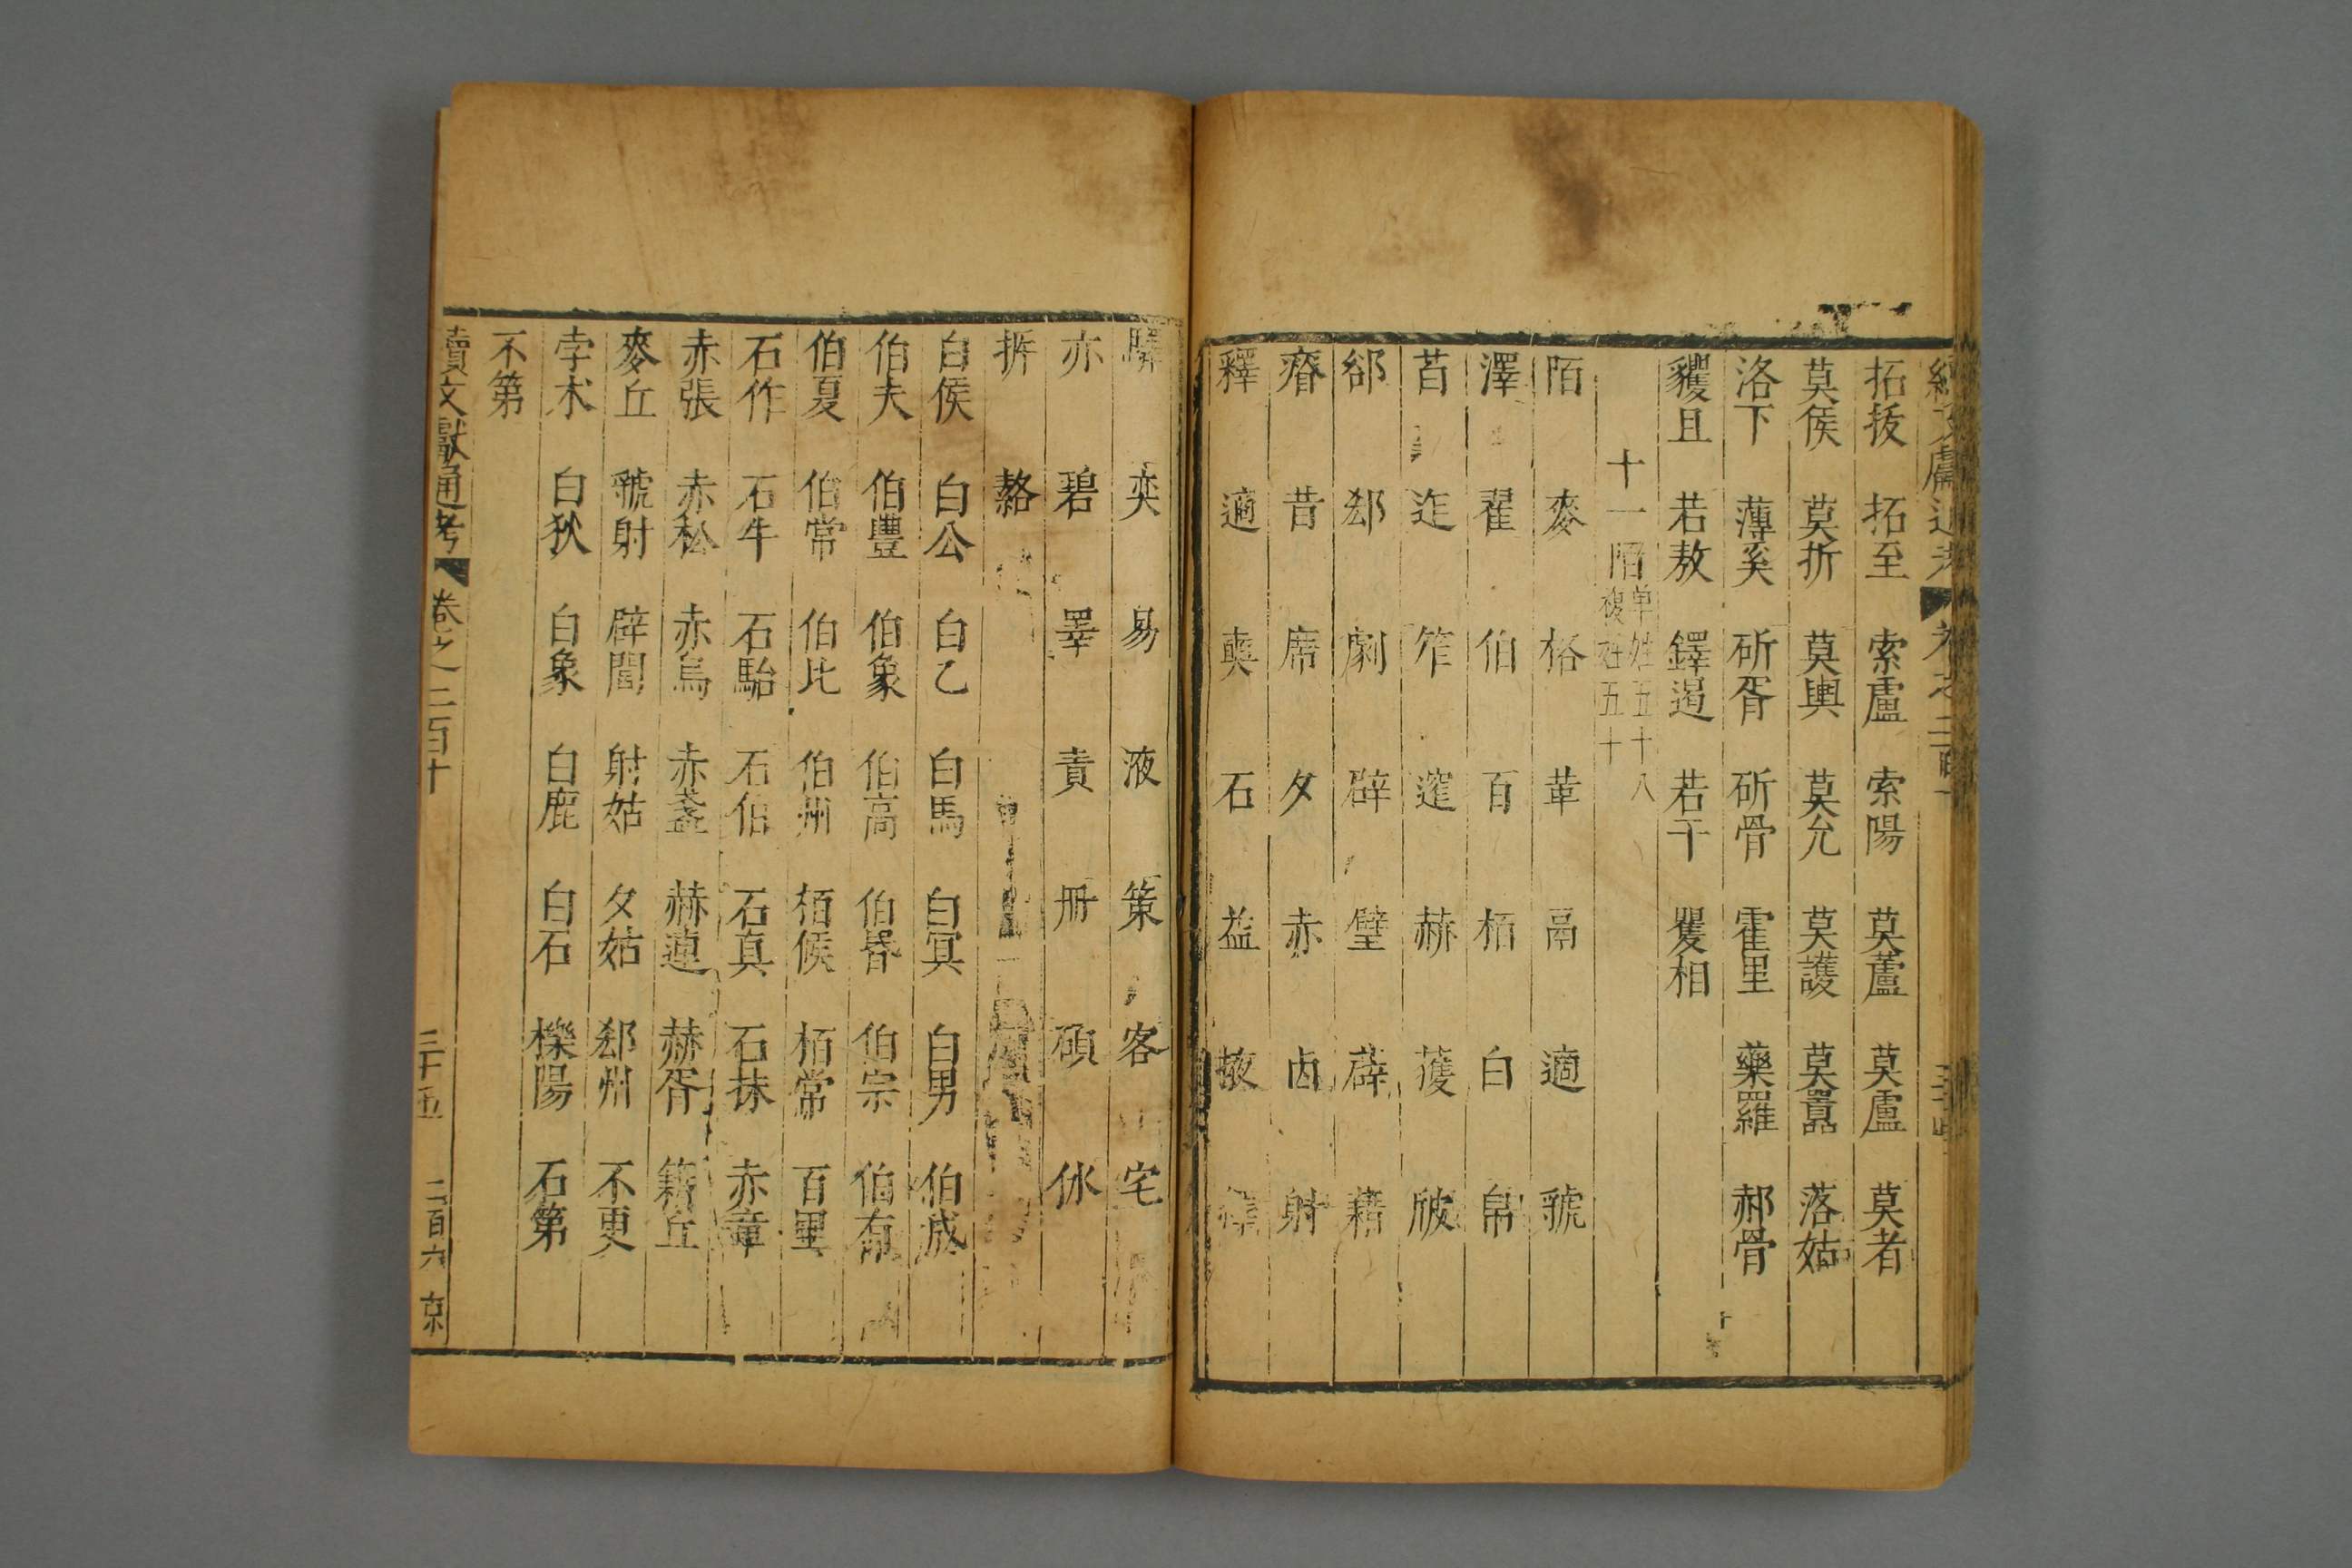 拓拔 拓至 索盧 索陽 莫蘆 莫盧 莫者
莫侯 莫折 莫輿 莫允 莫護 莫囂 落姑
洛下 薄奚 斫胥 斫骨 霍里 藥羅 郝骨
貜且 若敖 鐸遏 若干 矍相
十一陌 单姓五十八 複姓五十
陌 麥 格 革 鬲 適 號
澤 翟 伯 百 栢 白 帛
莟 迮 笮 蓰 赫 蒦
郤 郄 劇 辟 璧 薜 藉
瘠 昔 席 夕 赤 卤 射
釋 適 奭 石 益 掖
奕 易 液 策 客 宅
亦 碧 睪 責 册 碩
拆 䩹
白侯 白公 白乙 白馬 白冥 白男 伯成
伯夫 伯豐 伯象 伯高 伯昏 伯宗 伯有
伯夏 伯常 伯比 伯州 栢侯 栢常 百里
石作 石牛 石駘 石伯 石真 石抹 赤章
赤張 赤松 赤烏 赤盞 赫連 赫胥 籍丘
麥丘 虢射 辟閭 射姑 夕姑 郄州 不更
孛术 白狄 白象 白鹿 白石 櫟陽 石第
不第
續文獻通考 卷之二百十 三十五 二百六 京